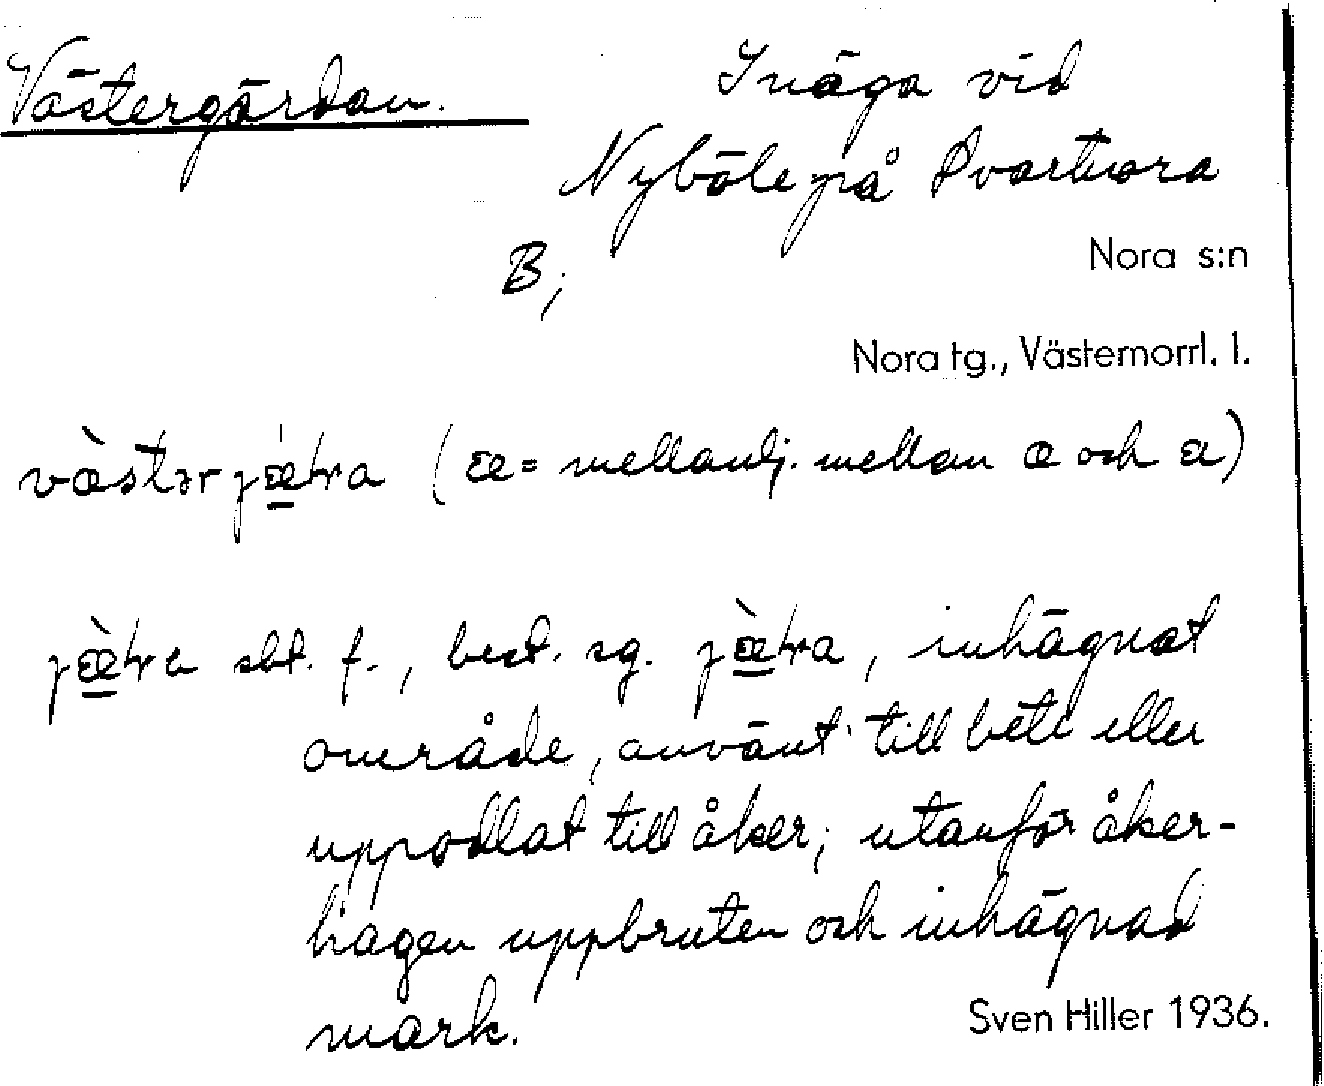 Västergärdan.
Inäga vid
Nyböle på Svartnora
B;
Nora s:n
Nora tg., Västernorrl. l.
vȁstərjæ̲tra (æ = mellanlj. mellan æ och a)
jæ̲̀tra sbt. f., best. sg. jæ̲̀tra, inhägnat
område, använt till bete eller
uppodlat till åker; utanför åker-
hagen uppbruten och inhägnad
mark.
Sven Hiller 1936.